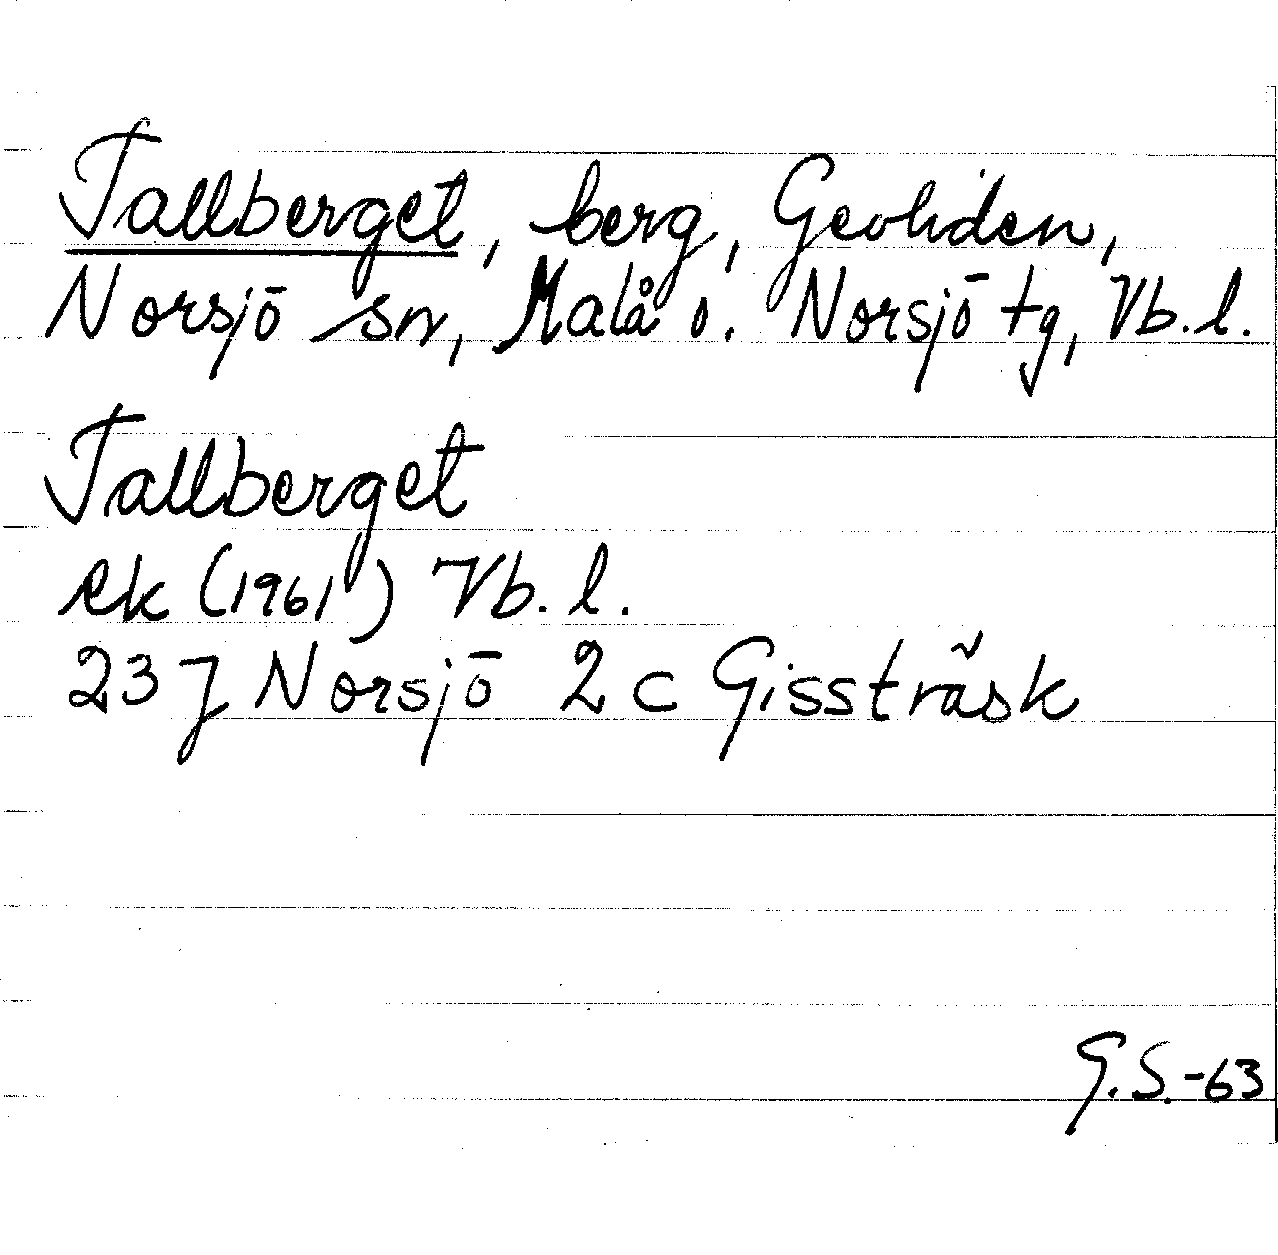 Tallberget, berg, Gevliden,
Norsjö sn, Malå o. Norsjö tg, Vb. l.
Tallberget
ek (1961) Vb. l.
23 J Norsjö 2 c Gissträsk
G.S.-63